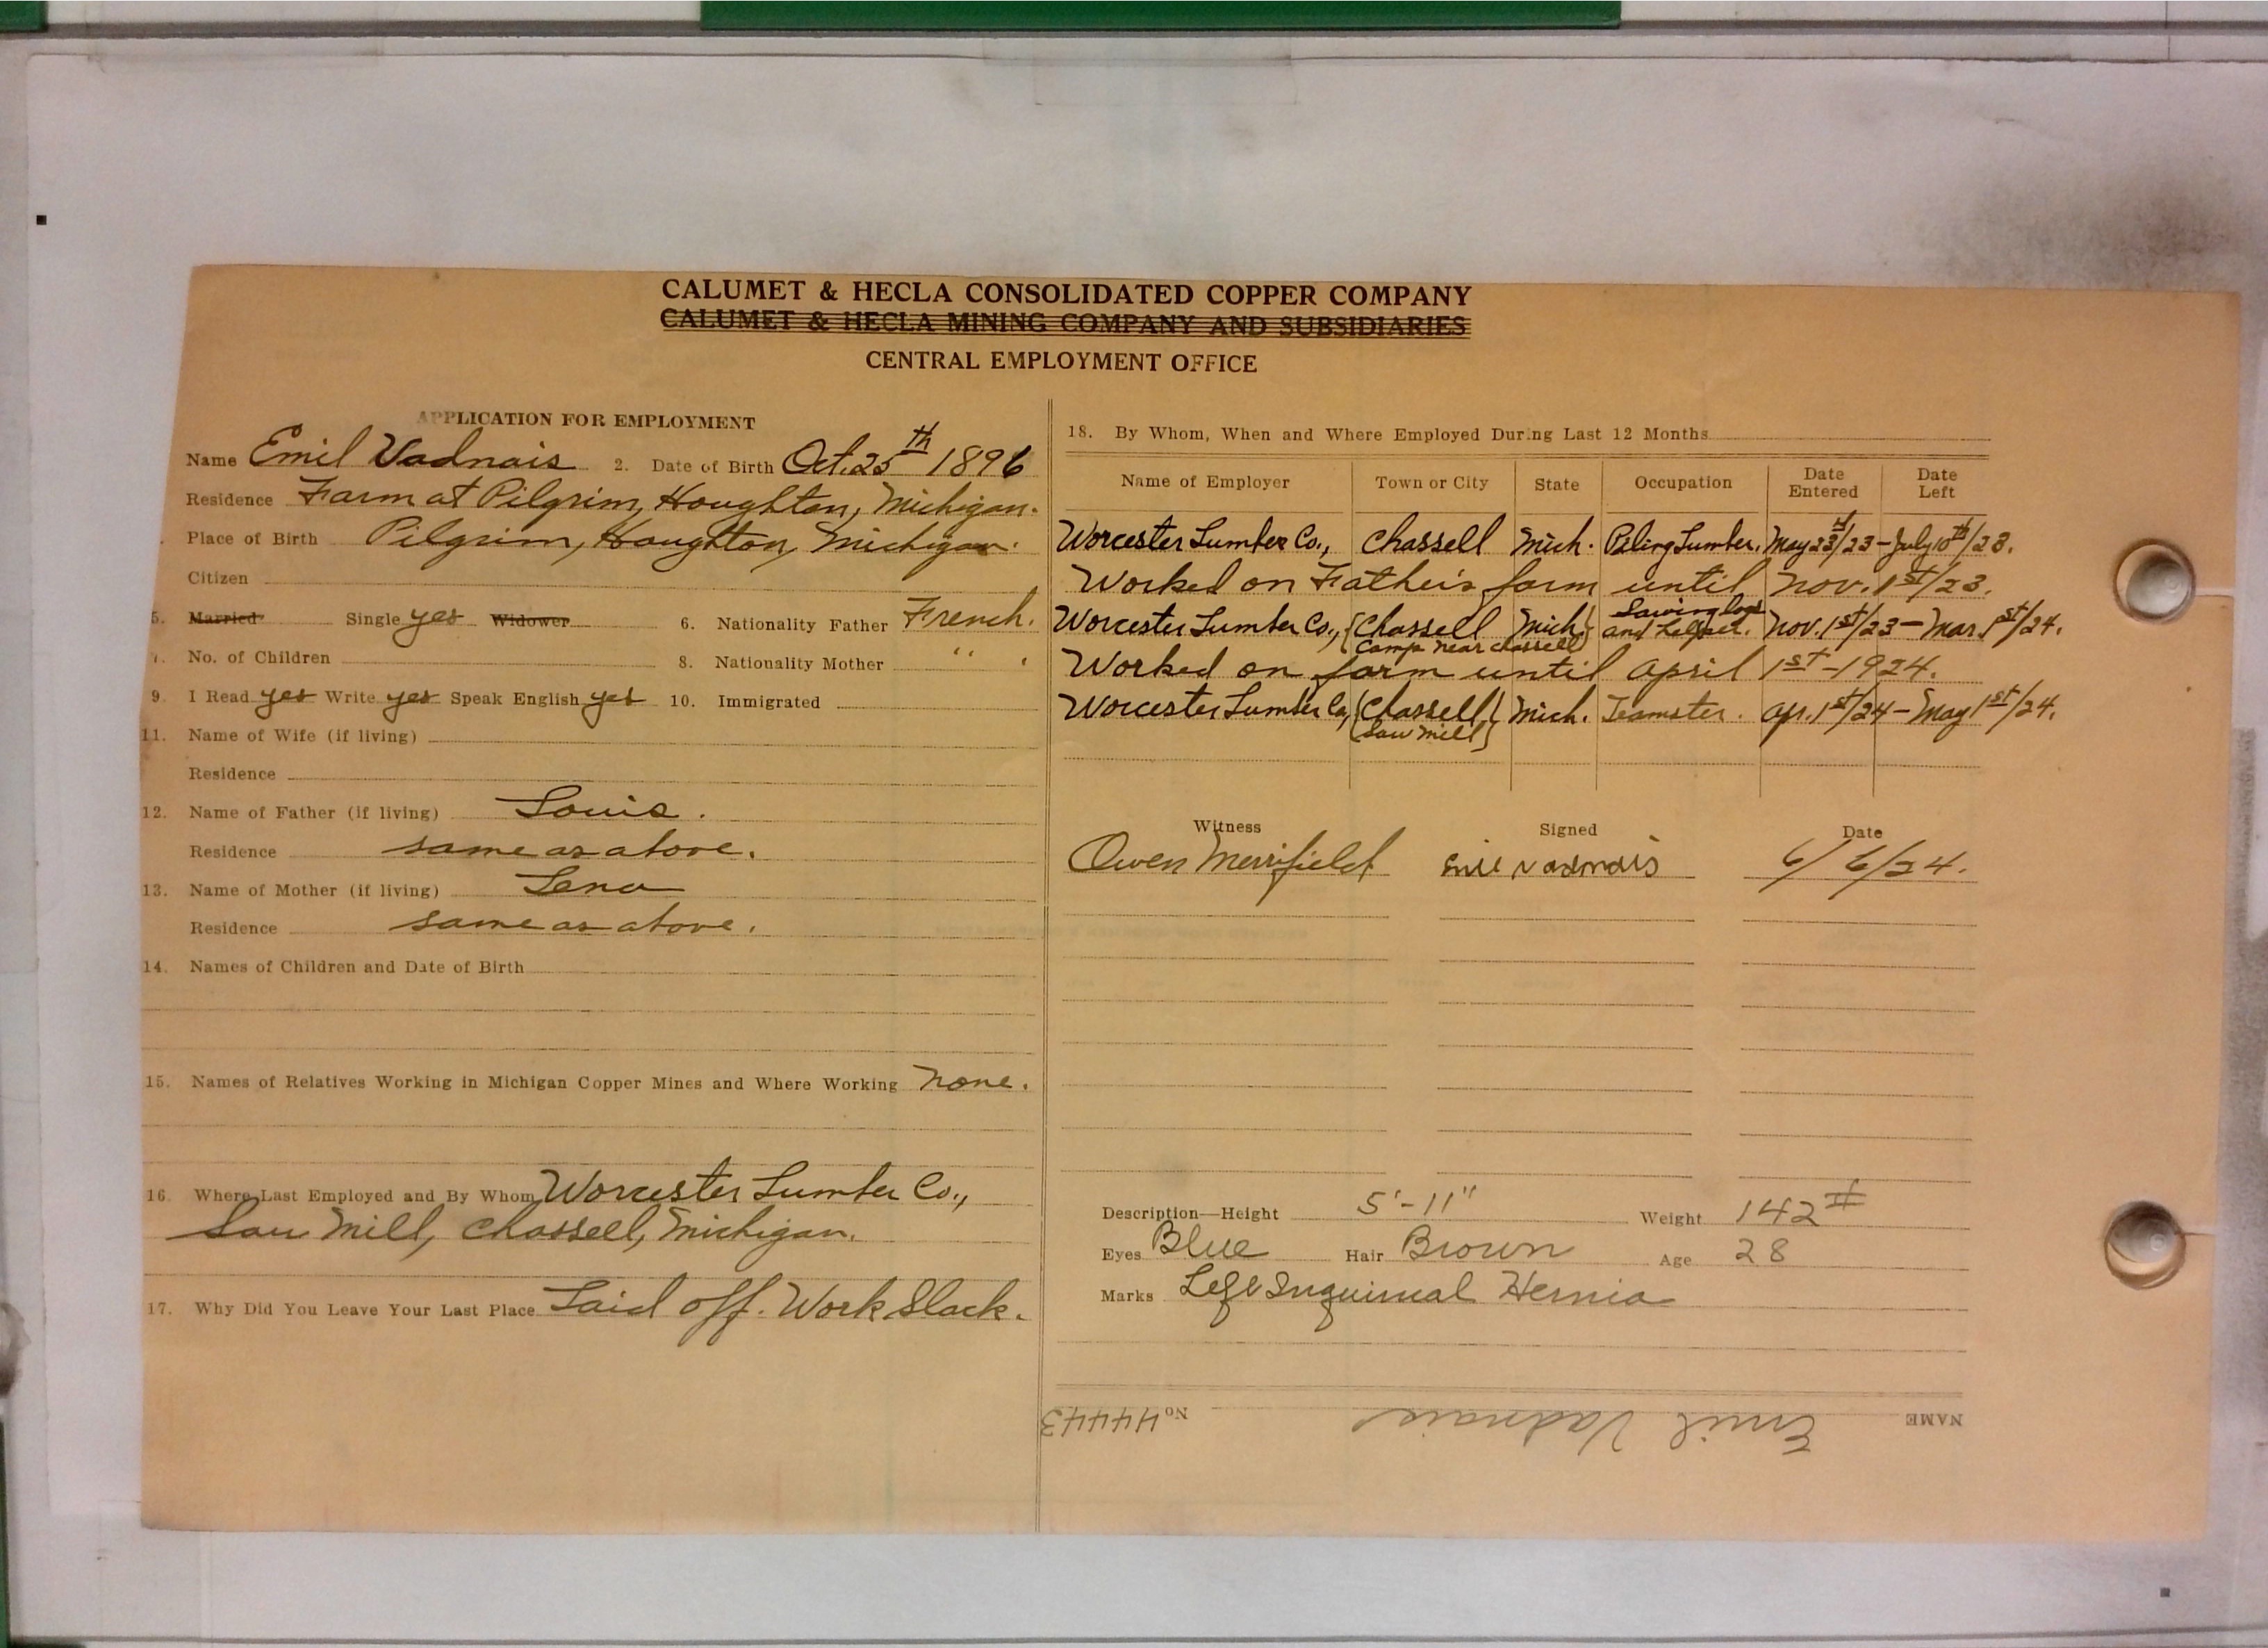 CALUMET & HECLA CONSOLIDATED COPPER COMPANY
CALUMET & HECLA MINING COMPANY AND SUBSIDIARIES
CENTRAL EMPLOYMENT OFFICE
APPLICATION FOR EMPLOYMENT
Name Emil Vadnais 2. Date of Birth Oct. 25th 1896
Residence Farm at Pilgrim, Houghton, Michigan.
Place of Birth Pilgrim, Houghton, Michigan.
Citizen
5. Married Single yes Widower 6. Nationality Father French.
7. No. of Children 8. Nationality Mother " .
9. I Read yes Write yes Speak English yes 10. Immigrated
11. Name of Wife (if living)
Residence
12. Name of Father (if living) Louis.
Residence same as above.
13. Name of Mother (if living) Lena
Residence same as above.
14. Names of Children and Date of Birth
15. Names of Relatives Working in Michigan Copper Mines and Where Working none.
16. Where Last Employed and By Whom Worcester Lumber Co.,
Saw Mill, Chassell, Michigan.
17. Why Did You Leave Your Last Place Laid off. Work Slack.
18. By Whom, When and Where Employed During Last 12 Months
Name of Employer Town or City State Occupation Date Entered Date Left
Worcester Lumber Co., Chassell Mich. Piling Lumber. May 23rd/23 - July 10th/23.
Worked on Father's farm until Nov. 1st/23.
Worcester Lumber Co., (Chassell Mich) Sawing logs Nov. 1st/23 - Mar. 1st/24.
Camp near Chassell and helper.
Worked on farm until April 1st - 1924.
Worcester Lumber Co, (Chassell) Mich. Teamster. Apr. 1st/24 - May 1st/24.
(Saw Mill)
Witness Signed Date
Owen Merrifield Emil Vadnais 6/6/24.
Description—Height 5'-11" Weight 142#
Eyes Blue Hair Brown Age 28
Marks Left Inguinual Hernia
NAME Emil Vadnais No 44443